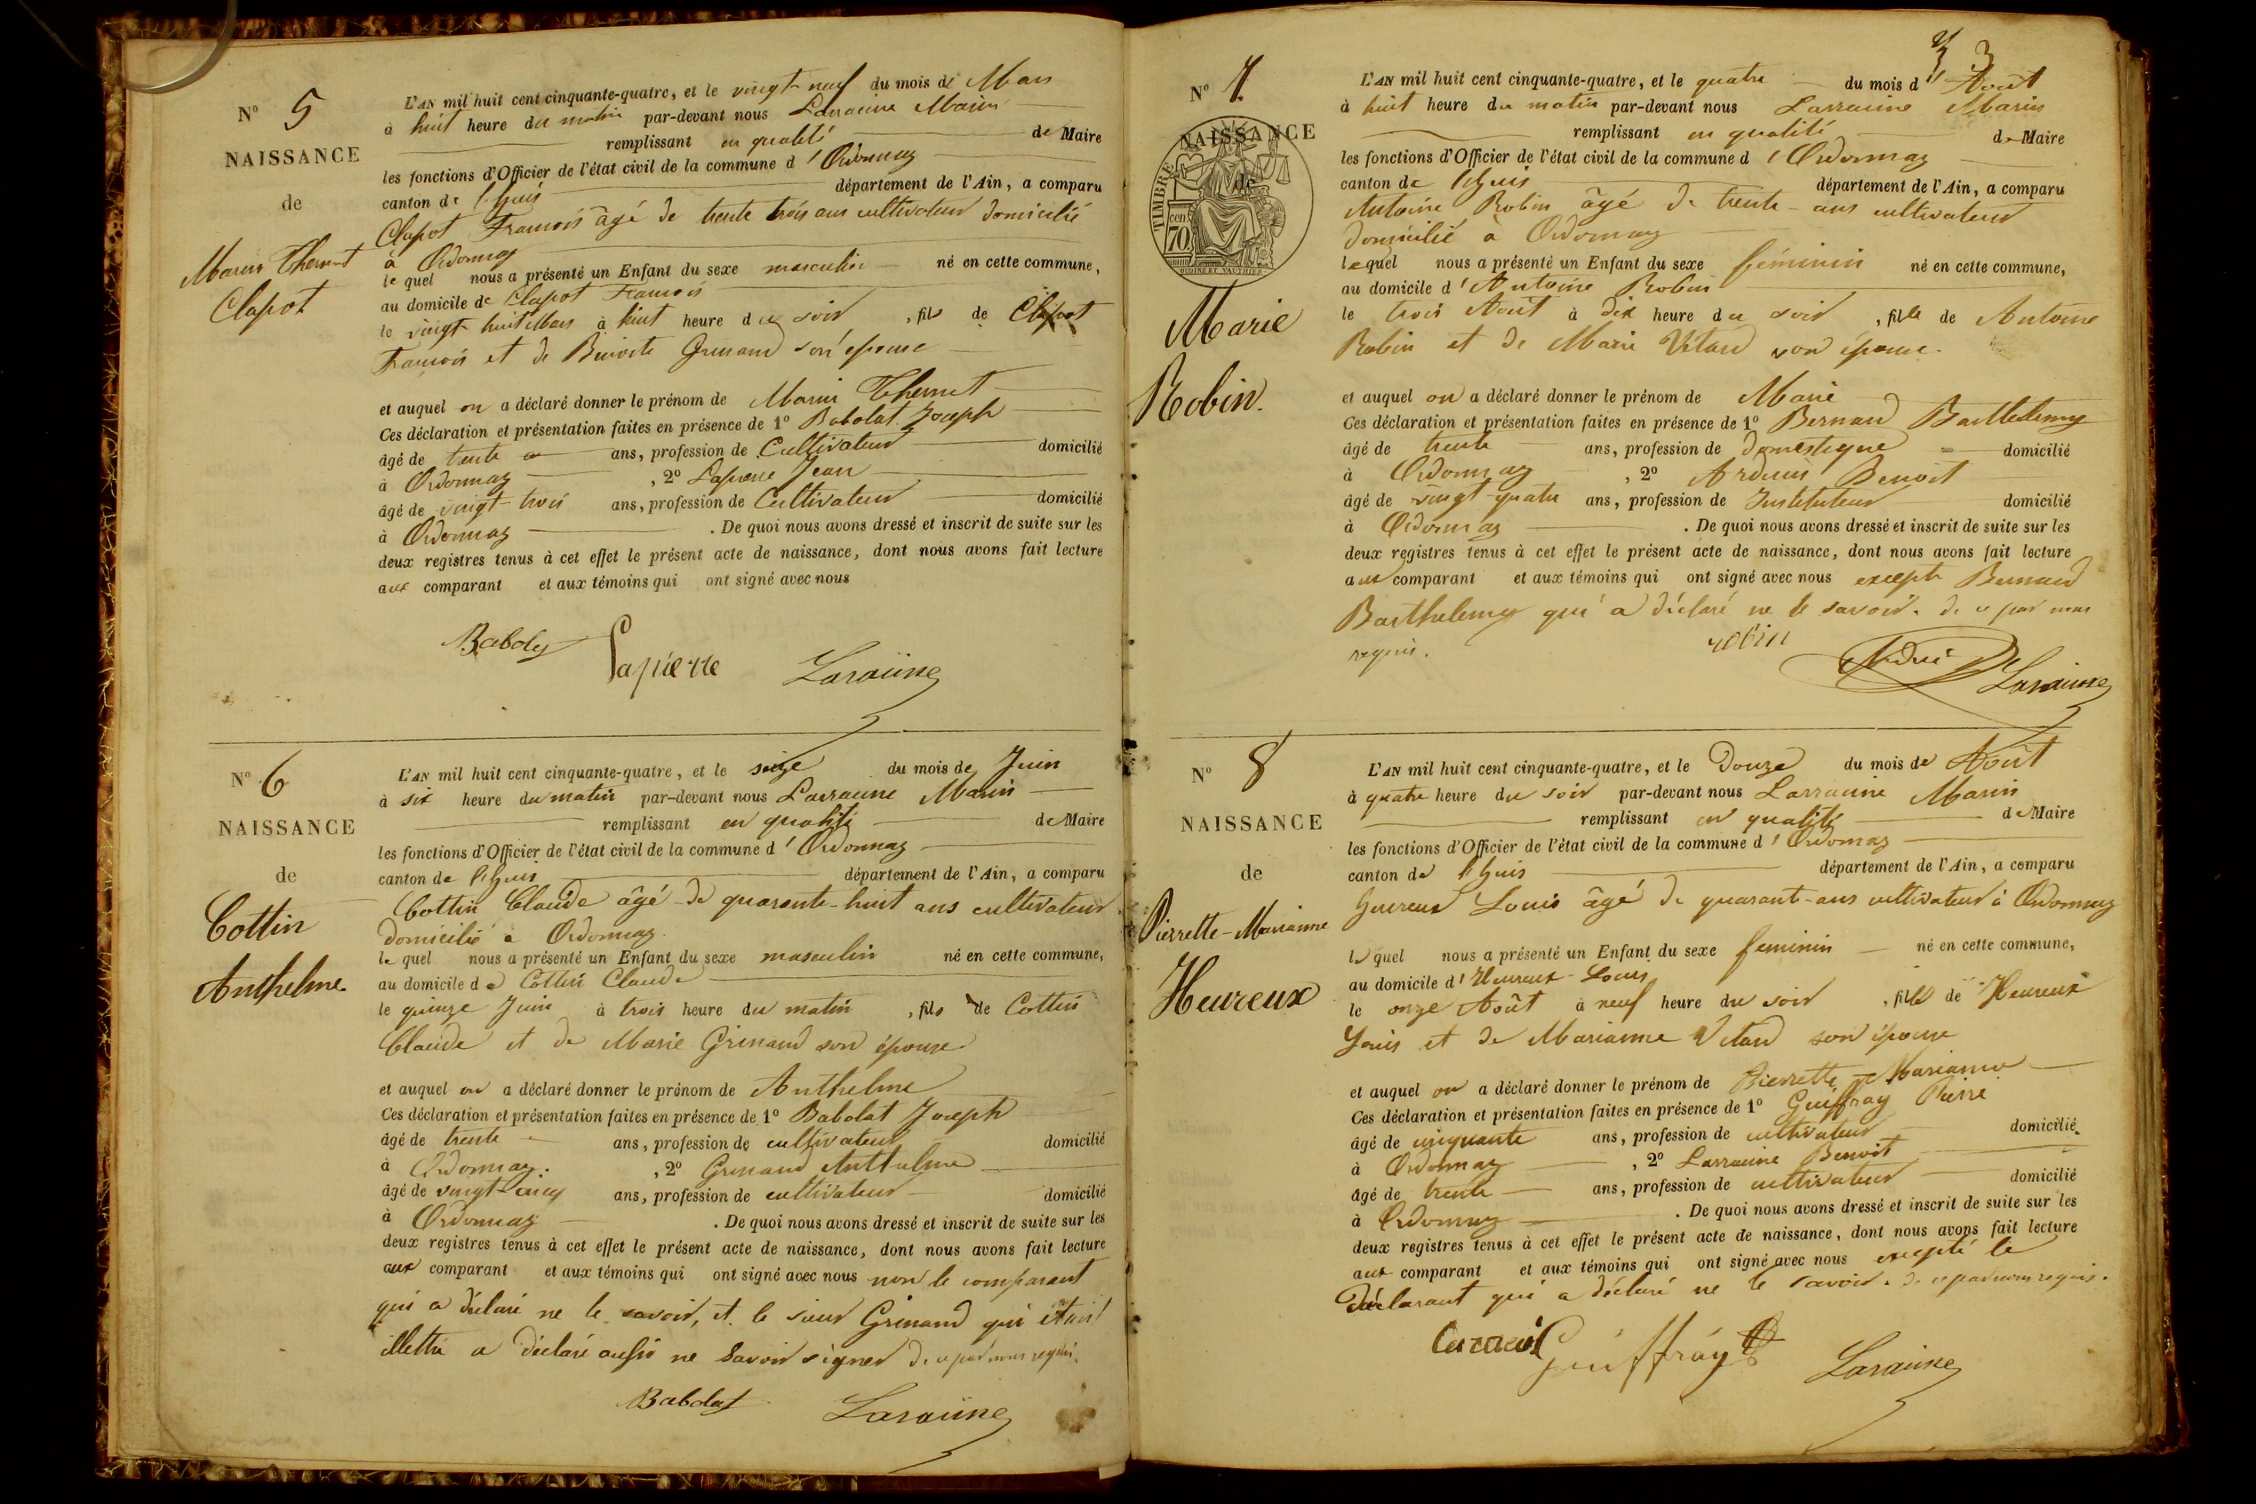 N° 5
NAISSANCE
de
Marin Themet
Clapot
L'AN mil huit cent cinquante-quatre, et le vingt-neuf du mois de Mars
à huit heure du matin par-devant nous Larraine Marin
remplissant en qualité de Maire
les fonctions d'Officier de l'état civil de la commune d'Ordonnaz
canton de l'huis département de l'Ain, a comparu
Clapot François âgé de trente trois ans cultivateur domicilié
à Ordonnaz
lequel nous a présenté un Enfant du sexe masculin né en cette commune,
au domicile de Clapot François
le vingt-huit Mars à huit heure du soir, fils de Clapot
François et de Benoite Grinand son épouse
et auquel on a déclaré donner le prénom de Marin Themet
Ces déclaration et présentation faites en présence de 1° Babolat Joseph
âgé de trente ans, profession de Cultivateur domicilié
à Ordonnaz, 2° Lapierre Jean
âgé de vingt-trois ans, profession de Cultivateur domicilié
à Ordonnaz. De quoi nous avons dressé et inscrit de suite sur les
deux registres tenus à cet effet le présent acte de naissance, dont nous avons fait lecture
aux comparant et aux témoins qui ont signé avec nous
Lapierre Laraiine
N° 6
NAISSANCE
de
Cottin
Anthelme.
L'AN mil huit cent cinquante-quatre, et le seize du mois de Juin
à six heure du matin par-devant nous Larraine Marin
remplissant en qualité de Maire
les fonctions d'Officier de l'état civil de la commune d'Ordonnaz
canton de l'huis département de l'Ain, a comparu
Cottin Claude âgé de quarante-huit ans cultivateur
domicilié à Ordonnaz.
lequel nous a présenté un Enfant du sexe masculin né en cette commune,
au domicile de Cottin Claude
le quinze Juin à trois heure du matin, fils de Cottin
Claude et de Marie Grinand son épouse
et auquel on a déclaré donner le prénom de Anthelme
Ces déclaration et présentation faites en présence de 1° Babolat Joseph
âgé de trente ans, profession de cultivateur domicilié
à Ordonnaz. , 2° Grinand Anthelme
âgé de vingt-cinq ans, profession de cultivateur domicilié
à Ordonnaz. De quoi nous avons dressé et inscrit de suite sur les
deux registres tenus à cet effet le présent acte de naissance, dont nous avons fait lecture
aux comparant et aux témoins qui ont signé avec nous non le comparant
qui a déclaré ne le savoir, et le sieur Grinand qui étant
illettré a déclaré aussi ne savoir signer de ce par nous requis.
Babolat Laraiine
3
N° 7.
NAISSANCE
de
TIMBRE
70
Marie
Robin.
L'AN mil huit cent cinquante-quatre, et le quatre du mois d'Août
à huit heure du matin par-devant nous Larraine Marin
remplissant en qualité de Maire
les fonctions d'Officier de l'état civil de la commune d'Ordonnaz
canton de l'huis département de l'Ain, a comparu
Antoine Robin âgé de trente-ans cultivateur
domicilié à Ordonnaz
lequel nous a présenté un Enfant du sexe féminin né en cette commune,
au domicile d'Antoine Robin
le trois Août à dix heure du soir, fille de Antoine
Robin et de Marie Vitard son épouse.
et auquel on a déclaré donner le prénom de Marie
Ces déclaration et présentation faites en présence de 1° Bernard Barthelemy
âgé de trente ans, profession de domestique domicilié
à Ordonnaz, 2° Arduis Benoit
âgé de vingt-quatre ans, profession de Instituteur domicilié
à Ordonnaz. De quoi nous avons dressé et inscrit de suite sur les
deux registres tenus à cet effet le présent acte de naissance, dont nous avons fait lecture
aux comparant et aux témoins qui ont signé avec nous excepté Bernard
Barthelemy qui a déclaré ne le savoir. de ce par nous
requis. robin
Laraiine
N° 8
NAISSANCE
de
Pierrette-Marianne
Heureux
L'AN mil huit cent cinquante-quatre, et le Douze du mois de Août
à quatre heure du soir par-devant nous Larraine Marin
remplissant en qualité de Maire
les fonctions d'Officier de l'état civil de la commune d'Ordonnaz
canton de l'huis département de l'Ain, a comparu
heureux Louis âgé de quarant-ans cultivateur à Ordonnaz
lequel nous a présenté un Enfant du sexe feminin né en cette commune,
au domicile d'Heureux-Louis
le onze Août à neuf heure du soir, fille de Heureux
Louis et de Marianne Vitard son épouse
et auquel on a déclaré donner le prénom de Pierrette-Marianne
Ces déclaration et présentation faites en présence de 1° Guiffray Pierre
âgé de cinquante ans, profession de cultivateur domicilié
à Ordonnaz, 2° Larraine Benoit
âgé de trente ans, profession de cultivateur domicilié
à Ordonnaz. De quoi nous avons dressé et inscrit de suite sur les
deux registres tenus à cet effet le présent acte de naissance, dont nous avons fait lecture
aux comparant et aux témoins qui ont signé avec nous excepté le
déclarant qui a déclaré ne le savoir. de ce par nous requis.
Guiffray Laraiine